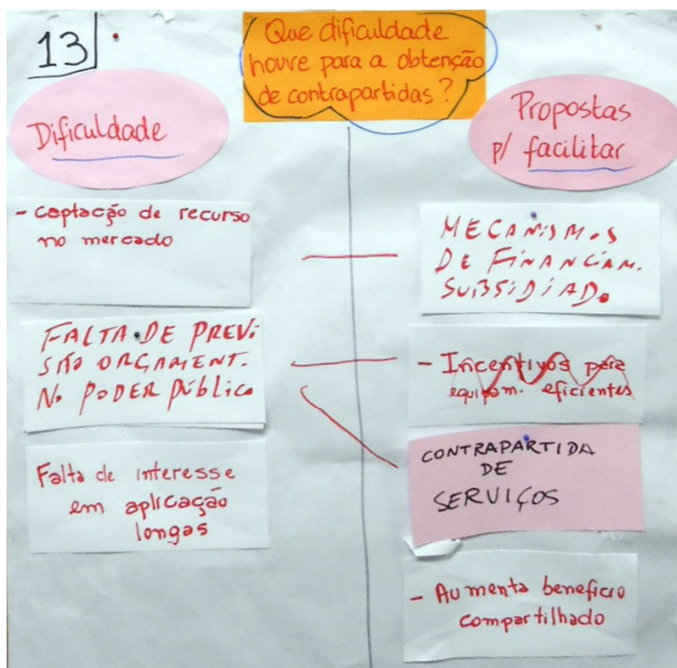 13
Que dificuldade
houve para a obtenção
de contrapartidas?
Dificuldade
- Captação de recurso
no mercado
FALTA DE PREVI
SÃO ORÇAMENT.
No PODER Público
Falta de interesse
em aplicação
longas
Propostas
p/ facilitar
MECANISMOS
DE FINANCIAM.
SUBSIDIADO
- Incentivos para
equipam. eficientes
CONTRAPARTIDA
DE
SERVIÇOS
- Aumenta benefício
compartilhado